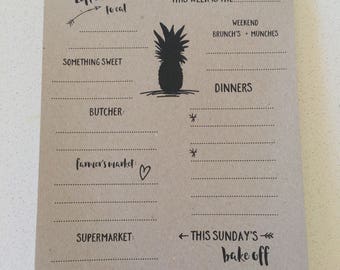 local
THIS WEEK IS THE
WEEKEND
BRUNCH'S + MUNCHES
SOMETHING SWEET
DINNERS
BUTCHER:
farmer's market:
SUPERMARKET:
THIS SUNDAY'S
bake off